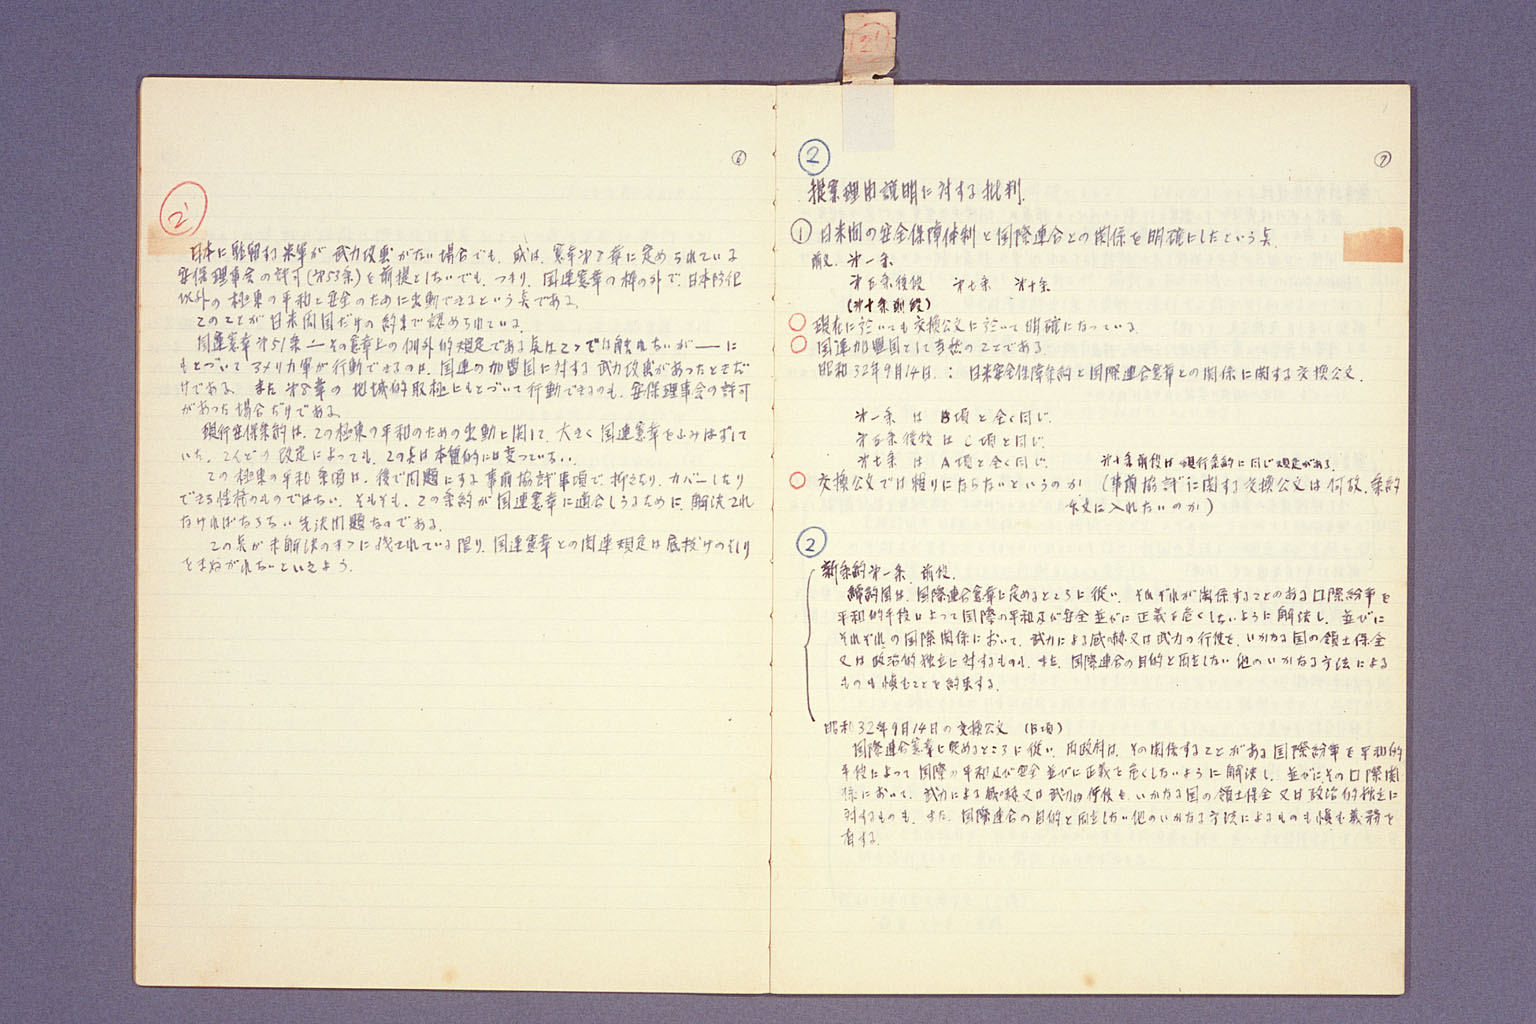 2'
6
2'
日本に駐留する米軍が武力攻撃がない場合でも、或は、憲章第7章に定められている
安保理事会の許可(第53条)を前提としないでも、つまり、国連憲章の枠の外で、日本防衛
以外の極東の平和と安全のために出動できるという点である。
このことが日米両国だけの約束で認められている。
国連憲章第51条―その憲章上の例外的規定である点はここでは触れないが――に
もとづいてアメリカ軍が行動できるのは、国連の加盟国に対する武力攻撃があったときだ
けである。また第8章の地域的取極にもとづいて行動できるのも、安保理事会の許可
があった場合だけである。
現行安保条約は、この極東の平和のための出動に関して、大きく国連憲章をふみはずして
いた。こんどの改定によっても、この点は本質的には変っていない。
この極東の平和条項は、後で問題にする事前協議事項で、折きなり、カバーしたり
できる性格のものではない。そもそも、この条約が国連憲章に適合しうるために、解決され
なければならない先決問題なのである。
この点が未解決のまゝに残されている限り、国連憲章との関連規定は底抜けのそしり
をまぬがれないといえよう。
②
7
提案理由説明に対する批判.
① 日米間の安全保障体制と国際連合との関係を明確にしたという点
前文. 第一条
第五条後段 第七条 第十条
(第十条前段)
○ 現在に於いても交換公文に於いて明確になっている.
○ 国連加盟国として当然のことである.
昭和32年9月14日. : 日米安全保障条約と国際連合憲章との関係に関する交換公文.
第一条 は B項と全く同じ.
第五条後段は C項と同じ.
第七条 は A項と全く同じ. 第十条前段は現行条約に同じ規定がある.
○ 交換公文では頼りにならないというのか (事前協議に関する交換公文は何故、条約
本文に入れないのか)
②
新条約第一条 前段.
締約国は、国際連合憲章に定めるところに従い、それぞれが関係することのある国際紛争を
平和的手段によって国際の平和及び安全並びに正義を危くしないように解決し、並びに
それぞれの国際関係において、武力による威嚇又は武力の行使を、いかなる国の領土保全
又は政治的独立に対するものも、また、国際連合の目的と両立しない他のいかなる方法による
ものも慎むことを約束する.
昭和32年9月14日の交換公文 (B項)
国際連合憲章に定めるところに従い、両政府は、その関係することがある国際紛争を平和的
手段によって国際の平和及び安全並びに正義を危くしないように解決し、並びにその国際関
係において、武力による威嚇又は武力の行使を、いかなる国の領土保全又は政治的独立に
対するものも、また、国際連合の目的と両立しない他のいかなる方法によるものも慎む義務を
有する.